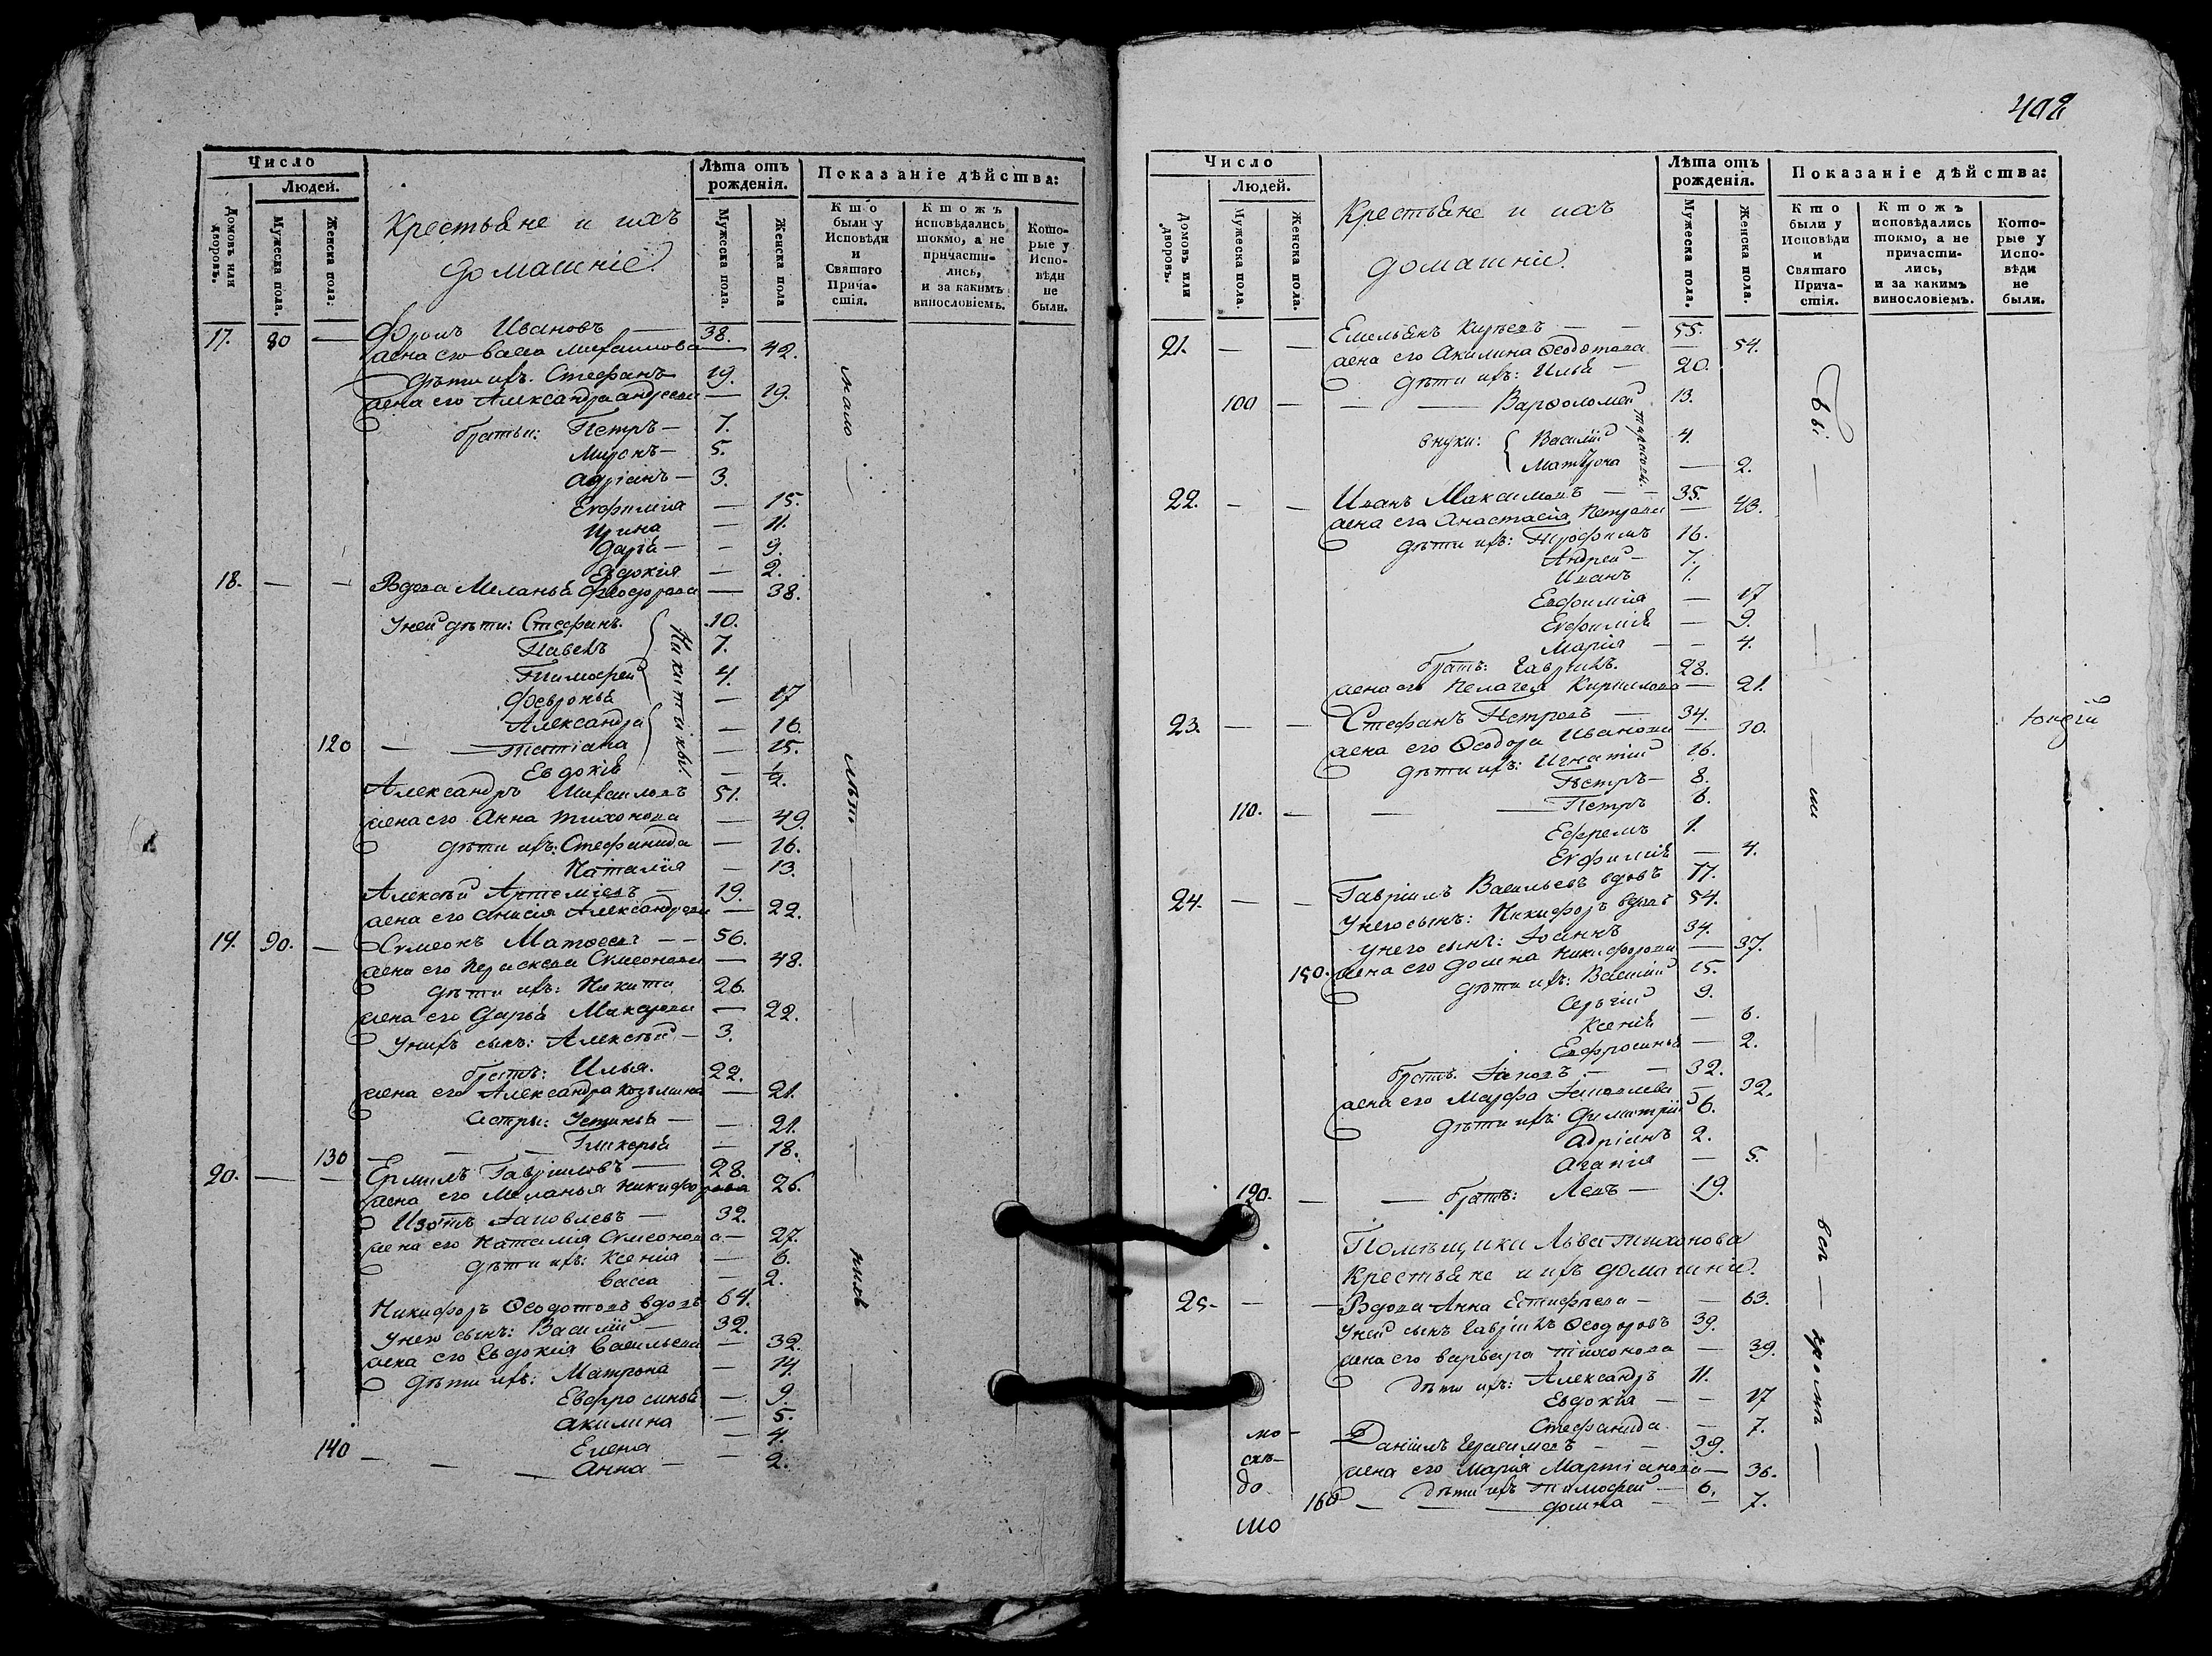 Число
Людей.
Домовъ или дворовъ.
Мужеска пола.
Женска пола.
Крестьяне и ихъ
домашніе.
Лѣта отъ рожденія.
Мужеска пола.
Женска пола
Показаніе дѣйства:
Кто были у Исповѣди и Святаго Прича-стія.
Ктожъ исповѣдались токмо, а не причасти-лись, и за какимъ винословіемъ.
Кото-рые у Испо-вѣди не были.
17. 80 — Фролъ Ивановъ — 38.
жена его Васса Михаилова — 42.
дѣти ихъ: Стефанъ 19.
жена его Александра Андреева — 19.
братьи: Петръ — 7.
Миронъ — 5.
Адріанъ — 3.
Евфимія — 15.
Ирина — 11.
Дарья — 9.
Евдокія — 2.
18. — — Вдова Меланья Феодорова — 38.
У ней дѣти: Стефанъ. 10.
Павелъ 7.
Тимофей 4.
Февронья — 17
Александра — 16.
120 — Татіана — 15.
Никитины.
Евдокія — 1/2.
Александръ Михаиловъ 51.
жена его Анна Тихонова — 49.
дѣти ихъ: Стефанида — 16.
Наталія — 13.
Алексѣй Артеміевъ — 19.
жена его Анисія Александрова — 22.
19. 90. — Симеонъ Матвеевъ — 56.
жена его Параскева Симеонова — 48.
дѣти ихъ: Никита 26.
жена его Дарья Макарова — 22.
У нихъ сынъ: Алексѣй — 3.
братъ: Илья. 22.
жена его Александра Козьмина — 21.
сестры: Устинья — 21.
130 — Гликерья — 18.
20. — — Ермилъ Гавріиловъ — 28.
жена его Меланья Никифорова 26.
Изотъ Іаковлевъ — 32.
жена его Наталія Симеонова — 27.
дѣти ихъ: Ксенія — 6.
Васса — 2.
Никифоръ Ѳеодотовъ вдовъ 64.
У него сынъ: Василій — 32.
жена его Евдокія Васильева — 32.
дѣти ихъ: Матрона — 14.
Евфросинья — 9.
Акилина — 5.
Елена — 4.
140 — — — Анна — 2.
408
Число
Людей.
Домовъ или дворовъ.
Мужеска пола.
Женска пола.
Крестьяне и ихъ
домашніе.
Лѣта отъ рожденія.
Мужеска пола.
Женска пола.
Показаніе дѣйства:
Кто были у Исповѣди и Святаго Прича-стія.
Ктожъ исповѣдались токмо, а не причасти-лись, и за какимъ винословіемъ.
Кото-рые у Испо-вѣди не были.
21. — — Емельянъ — — 55.
жена его Акилина Ѳеодотова — 54.
дѣти ихъ: Илья — 20.
100 — — — Варѳоломей 13.
внуки: Василій 4.
Матрона — 2.
Тарасовы.
22. — — Иванъ Максимовъ — — 35.
жена его Анастасія Петрова — 43.
дѣти ихъ: Трофимъ 16.
Андрей — 7.
Иванъ 1.
Евфимія — 17
Евфимія — 9.
Марія — — 4.
братъ: Гавріилъ. 28.
жена его Пелагея Кириллова — 21.
23. — — Стефанъ Петровъ — 34.
жена его Ѳеодора Иванова — 30.
дѣти ихъ: Игнатій 16.
Петръ — 8.
110. — — — Петръ 6.
Ефремъ 1.
Евфимія — 4.
24. — — Гавріилъ Васильевъ вдовъ 77.
У него сынъ: Никифоръ вдовъ 54.
У него сынъ: Іоаннъ 34.
150. жена его Домна Никифорова — 37.
дѣти ихъ: Василій 15.
Сергій 9.
Ксенія — 6.
Евфросинья — 2.
братъ. Іаковъ — — 32.
жена его Марфа Іаковлева — 32.
дѣти ихъ: Димитрій 6.
Адріанъ 2.
Агапія — 5.
120. — — братъ: Левъ — 19.
Помѣщика Льва Тихонова
крестьяне и ихъ домашніе.
25. — — Вдова Анна Естифѣева — — 63.
У ней сынъ Гавріилъ Ѳеодоровъ 39.
жена его Варвара Тихонова — 39.
дѣти ихъ: Александръ 11.
Евдокія — — 17
Стефанида — 7.
Даніилъ Герасимовъ — — 39.
жена его Марія Мартіанова — 36.
дѣти ихъ Тимофей — 6.
160 — — — Домна — — 7.